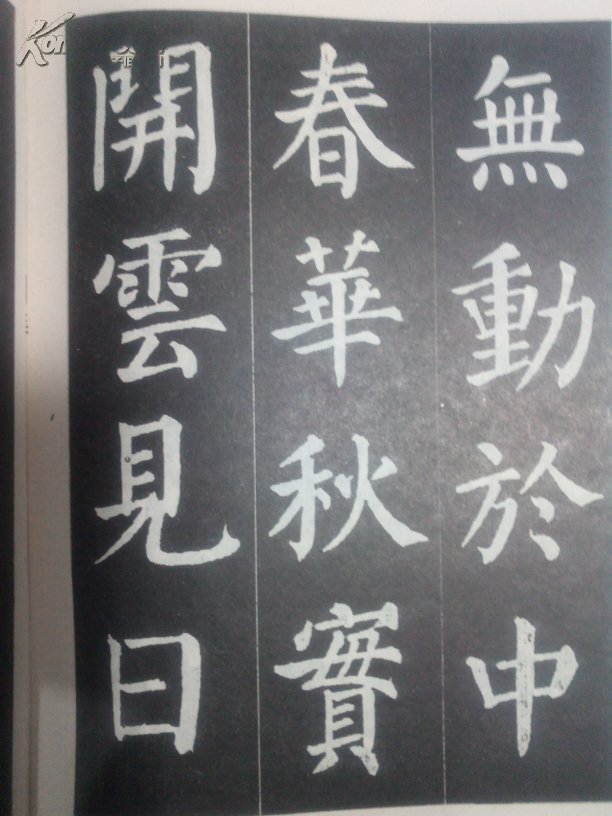 無動於中
春華秋實
開雲見日